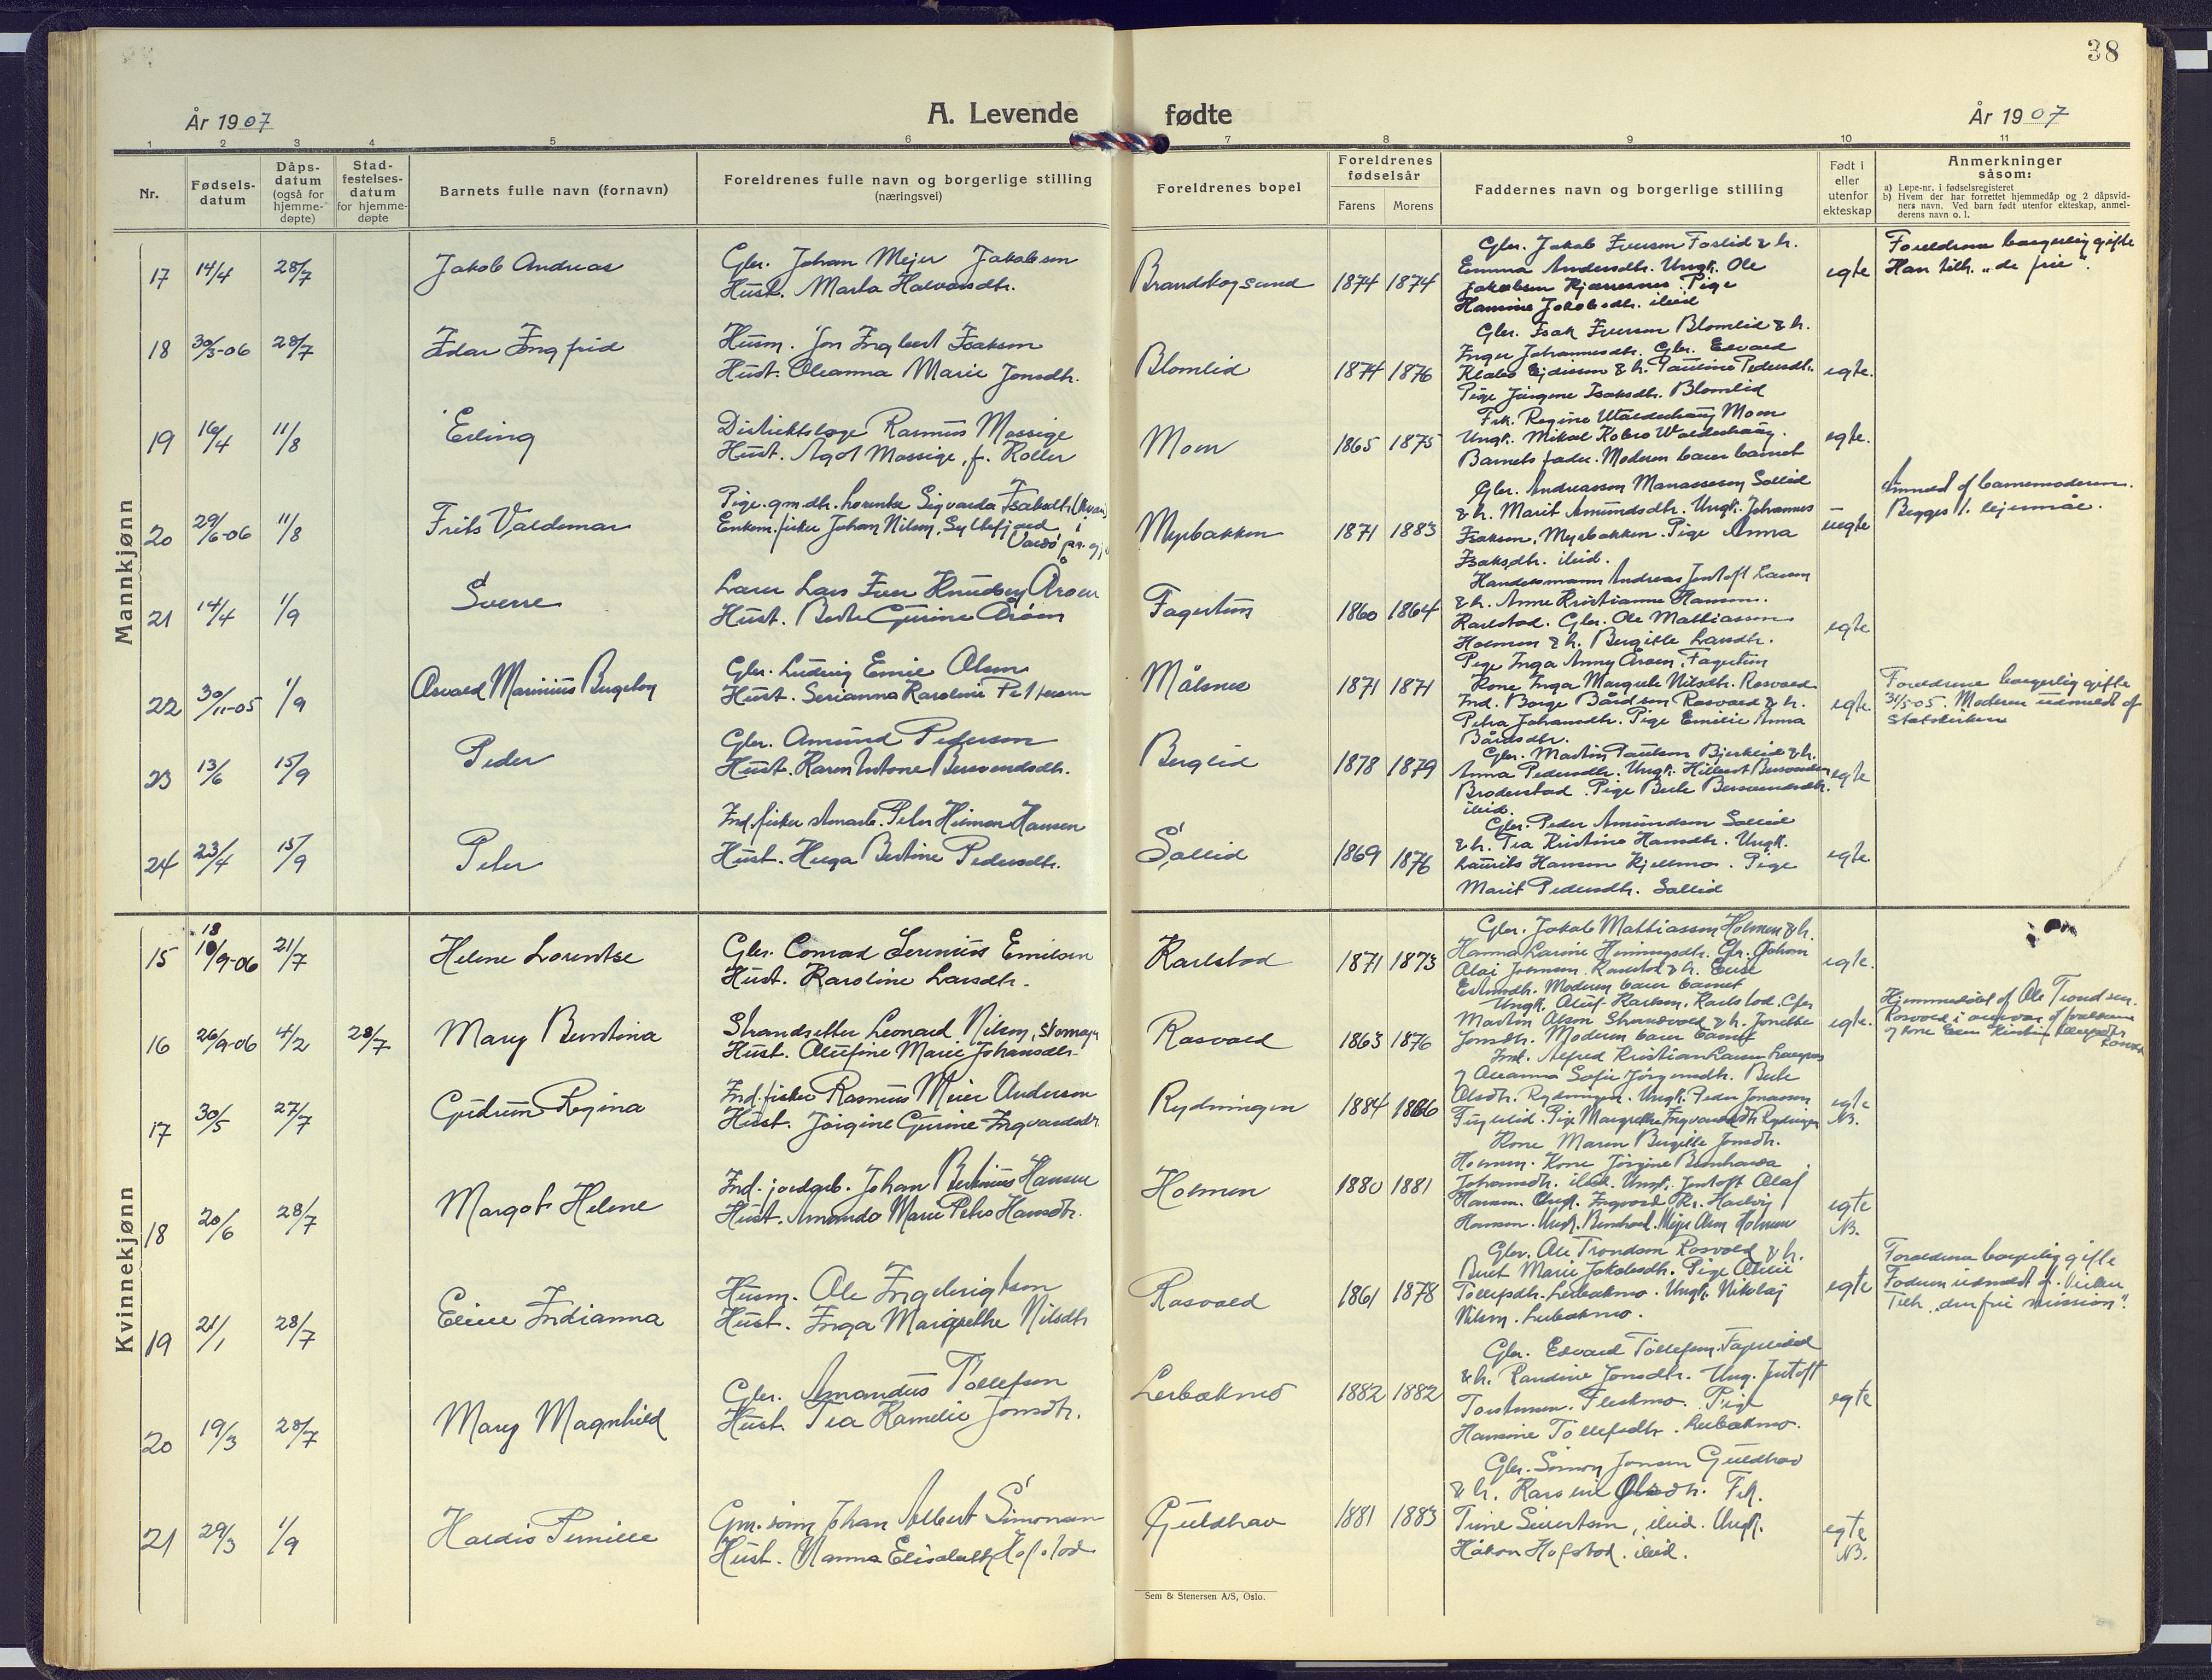 38
År 1907
A. Levende fødte
År 1907
1 2 3 4 5 6 7 8 9 10 11
Nr.
Fødsels-
datum
Dåps-
datum
(også for
hjemme-
døpte)
Stad-
festelses-
datum
for hjemme-
døpte
Barnets fulle navn (fornavn)
Foreldrenes fulle navn og borgerlige stilling
(næringsvei)
Foreldrenes bopel
Foreldrenes
fødselsår
Farens Morens
Faddernes navn og borgerlige stilling
Født i
eller
utenfor
ekteskap
Anmerkninger
såsom:
a) Løpe-nr. i fødselsregisteret
b) Hvem der har forrettet hjemmedåp og 2 dåpsvid-
ners navn. Ved barn født utenfor ekteskap, anmel-
derens navn o. l.
Mannkjønn
17 14/4 28/7 Jakob Andreas
Gbr. Johan Mejer Jakobsen
Hust. Marta Halvorsdtr.
Brandskogsund 1874 1874
Gbr. Jakob Iversen Foslid & h.
Emma Andersdtr. Ungk. Ole
Jakobsen Kjærresnes. Pige
Hansine Jakobsdtr. ibid
egte
Foreldrene borgerlig gifte
Han tilh. "de frie".
18 30/3-06 28/7 Idar Ingfrid
Husm. Jon Ingbert Isaksen
Hust. Oleanna Marie Jonsdtr.
Blomlid 1874 1876
Gbr. Isak Iversen Blomlid & h.
Inger Johannesdtr. Gbr. Edvard
Ejdissen & h. Pauline Pedersdtr.
Pige Jørgine Isaksdtr. Blomlid
egte.
19 16/4 11/8 Erling
Distriktslæge Rasmus Mossige
Hust. Agot Mossige, f. Koller
Moen 1865 1875
Frk. Regine Moen
Ungk. Mikal Kobro
Barnets fader. Moderen barer barnet
egte.
20 29/6-06 11/8 Frits Valdemar
Pige. gm.dtr. Lorentse Sigvarda Isaksdtr
Enkem. fisker Johan Nilsen, Syltefjord i
Vardø
Myrbakken 1871 1883
Gbr. Andreassen Manassesen Sollid
& h. Marit Amundsdtr. Ungk. Johannes
Isaksen, Myrbakken. Pige Anna
Isaksdtr. ibid.
uegte
Anmeldt af barnemoderen.
Begges 1. lejermål.
21 14/4 1/9 Sverre
Lærer Lars Iver Knudsen Årøen
Hust. Berte Gurine Årøen
Fagertun 1860 1864
Handelsmann Andreas Jentoft Larsen
& h. Anne Kristianne Hansen.
Karlstad. Gbr. Ole Mathiassen
Holmen & h. Bergitte Larsdtr.
Pige Inga Anny Årøen, Fagertun
egte
22 30/11-05 1/9 Osvald Marinius Bergeton
Gbr. Ludvig Emil Olsen
Hust. Serianna Karoline Pettersen
Målsnes 1871 1871
Kone Inga Margrete Nilsdtr. Rosvold
Ind. Borge Bårdsen Rosvold & h.
Petra Johansdtr. Pige Emilie Anna
Bårdsdtr.
egte.
Foreldrene borgerlig gifte
31/5-05. Moderen udmeldt af
Statskirken
23 13/6 15/9 Peder
Gbr. Amund Pedersen
Hust. Karen Antone Bersvendsdtr.
Berglid 1878 1879
Gbr. Martin Paulsen Bjerkelid & h.
Anna Pedersdtr. Ungk. Hilbert Bersvendsen
Broderstad. Pige Berte Bersvendsdtr.
ibid.
egte
24 23/4 15/9 Peter
Ind. fisker Peter Hilmar Hansen
Hust. Helga Bertine Pedersdtr.
Sollid 1869 1876
Gbr. Peder Amundsen Sollid
& h. Tea Kristine Hansdtr. Ungk.
Laurits Hansen Kjellmo. Pige
Marit Pedersdtr. Sollid
egte
Kvinnekjønn
15 18/9-06 21/7 Helene Lorentse
Gbr. Conrad Serenius Emilsen
Hust. Karoline Larsdtr.
Karlstad 1871 1873
Gbr. Jakob Mathiassen Holmen & h.
Hanna Larine Henningsdtr. Gbr. Johan
Olai Joensen. Karlstad & h. Elise
Moderen barer barnet
egte.
16 26/9-06 4/2 28/7 Mary Berntina
Strandsitter Leonard Nilsen, skomager
Hust. Olufine Marie Johansdtr
Rosvold 1863 1876
Ungk. Oluf Karlsen, Karlstad. Gbr
Martin Olsen Strandvold & h. Jonette
Jonsdtr. Moderen barer barnet
egte.
Hjemmedøbt af Ole Trondsen
Rosvold
17 30/5 27/7 Gudrun Regina
Ind. fisker Rasmus Meier Andersen
Hust. Jørgine Gurine Ingvardsdtr
Rydningen 1884 1886
Ind. Alfred Kristian Larsen
& Oleanna Sofie Jørgensdtr. Berte
Olsdtr. Rydningen. Ungk. Peder Jonassen
Fuglelid. Pige Margrethe Ingvardsdtr Rydningen
egte
N.
18 20/6 28/7 Margot Helene
Ind. jordarb. Johan Bertinius Hansen
Hust. Amanda Marie Petra Hansdtr.
Holmen 1880 1881
Kone Maren Bergitte Jonsdtr.
Holmen. Kone Jørgine Bernharda
Johansdtr. ibid. Ungk. Jentoft Olaf
Hansen. Ungk. Ingvard Kr. Hartvig
Hansen. Ungk. Bernhard Mejer Olsen Holmen
egte
N.
19 21/1 28/7 Eline Indianna
Husm. Ole Ingebrigtsen
Hust. Inga Margrethe Nilsdtr
Rosvold 1861 1878
Gbr. Ole Trondsen Rosvold & h.
Berit Marie Jakobsdtr. Pige Oline
Tollefsdtr. Lerbakmo. Ungk. Nikolaj
Nilsen. Lerbakmo.
egte
Foreldrene borgerlig gifte
Faderen udmeldt af Kirken
Tilh. "den frie mission".
20 19/3 28/7 Mary Magnhild
Gbr. Amandus Tollefsen
Hust. Tea Kamelie Jonsdtr.
Lerbakmo 1882 1882
Gbr. Edvard Tollefsen. Fagerlid
& h. Pauline Jonsdtr. Ung. Jentoft
Torstensen. Fleskmo. Pige
Hansine Tollefsdtr. Lerbakmo.
egte
21 29/3 1/9 Haldis Pernille
Gm. søn Johan Albert Simonsen
Hust. Nanna Elisabeth Hofstad
Guldhav 1881 1883
Gbr. Simon Jensen Guldhav
& h. Karoline Olsdtr. Frk.
Trine Sivertsen, ibid. Ungk.
Håkon Hofstad. ibid.
egte
N.
Sem & Stenersen A/S, Oslo.